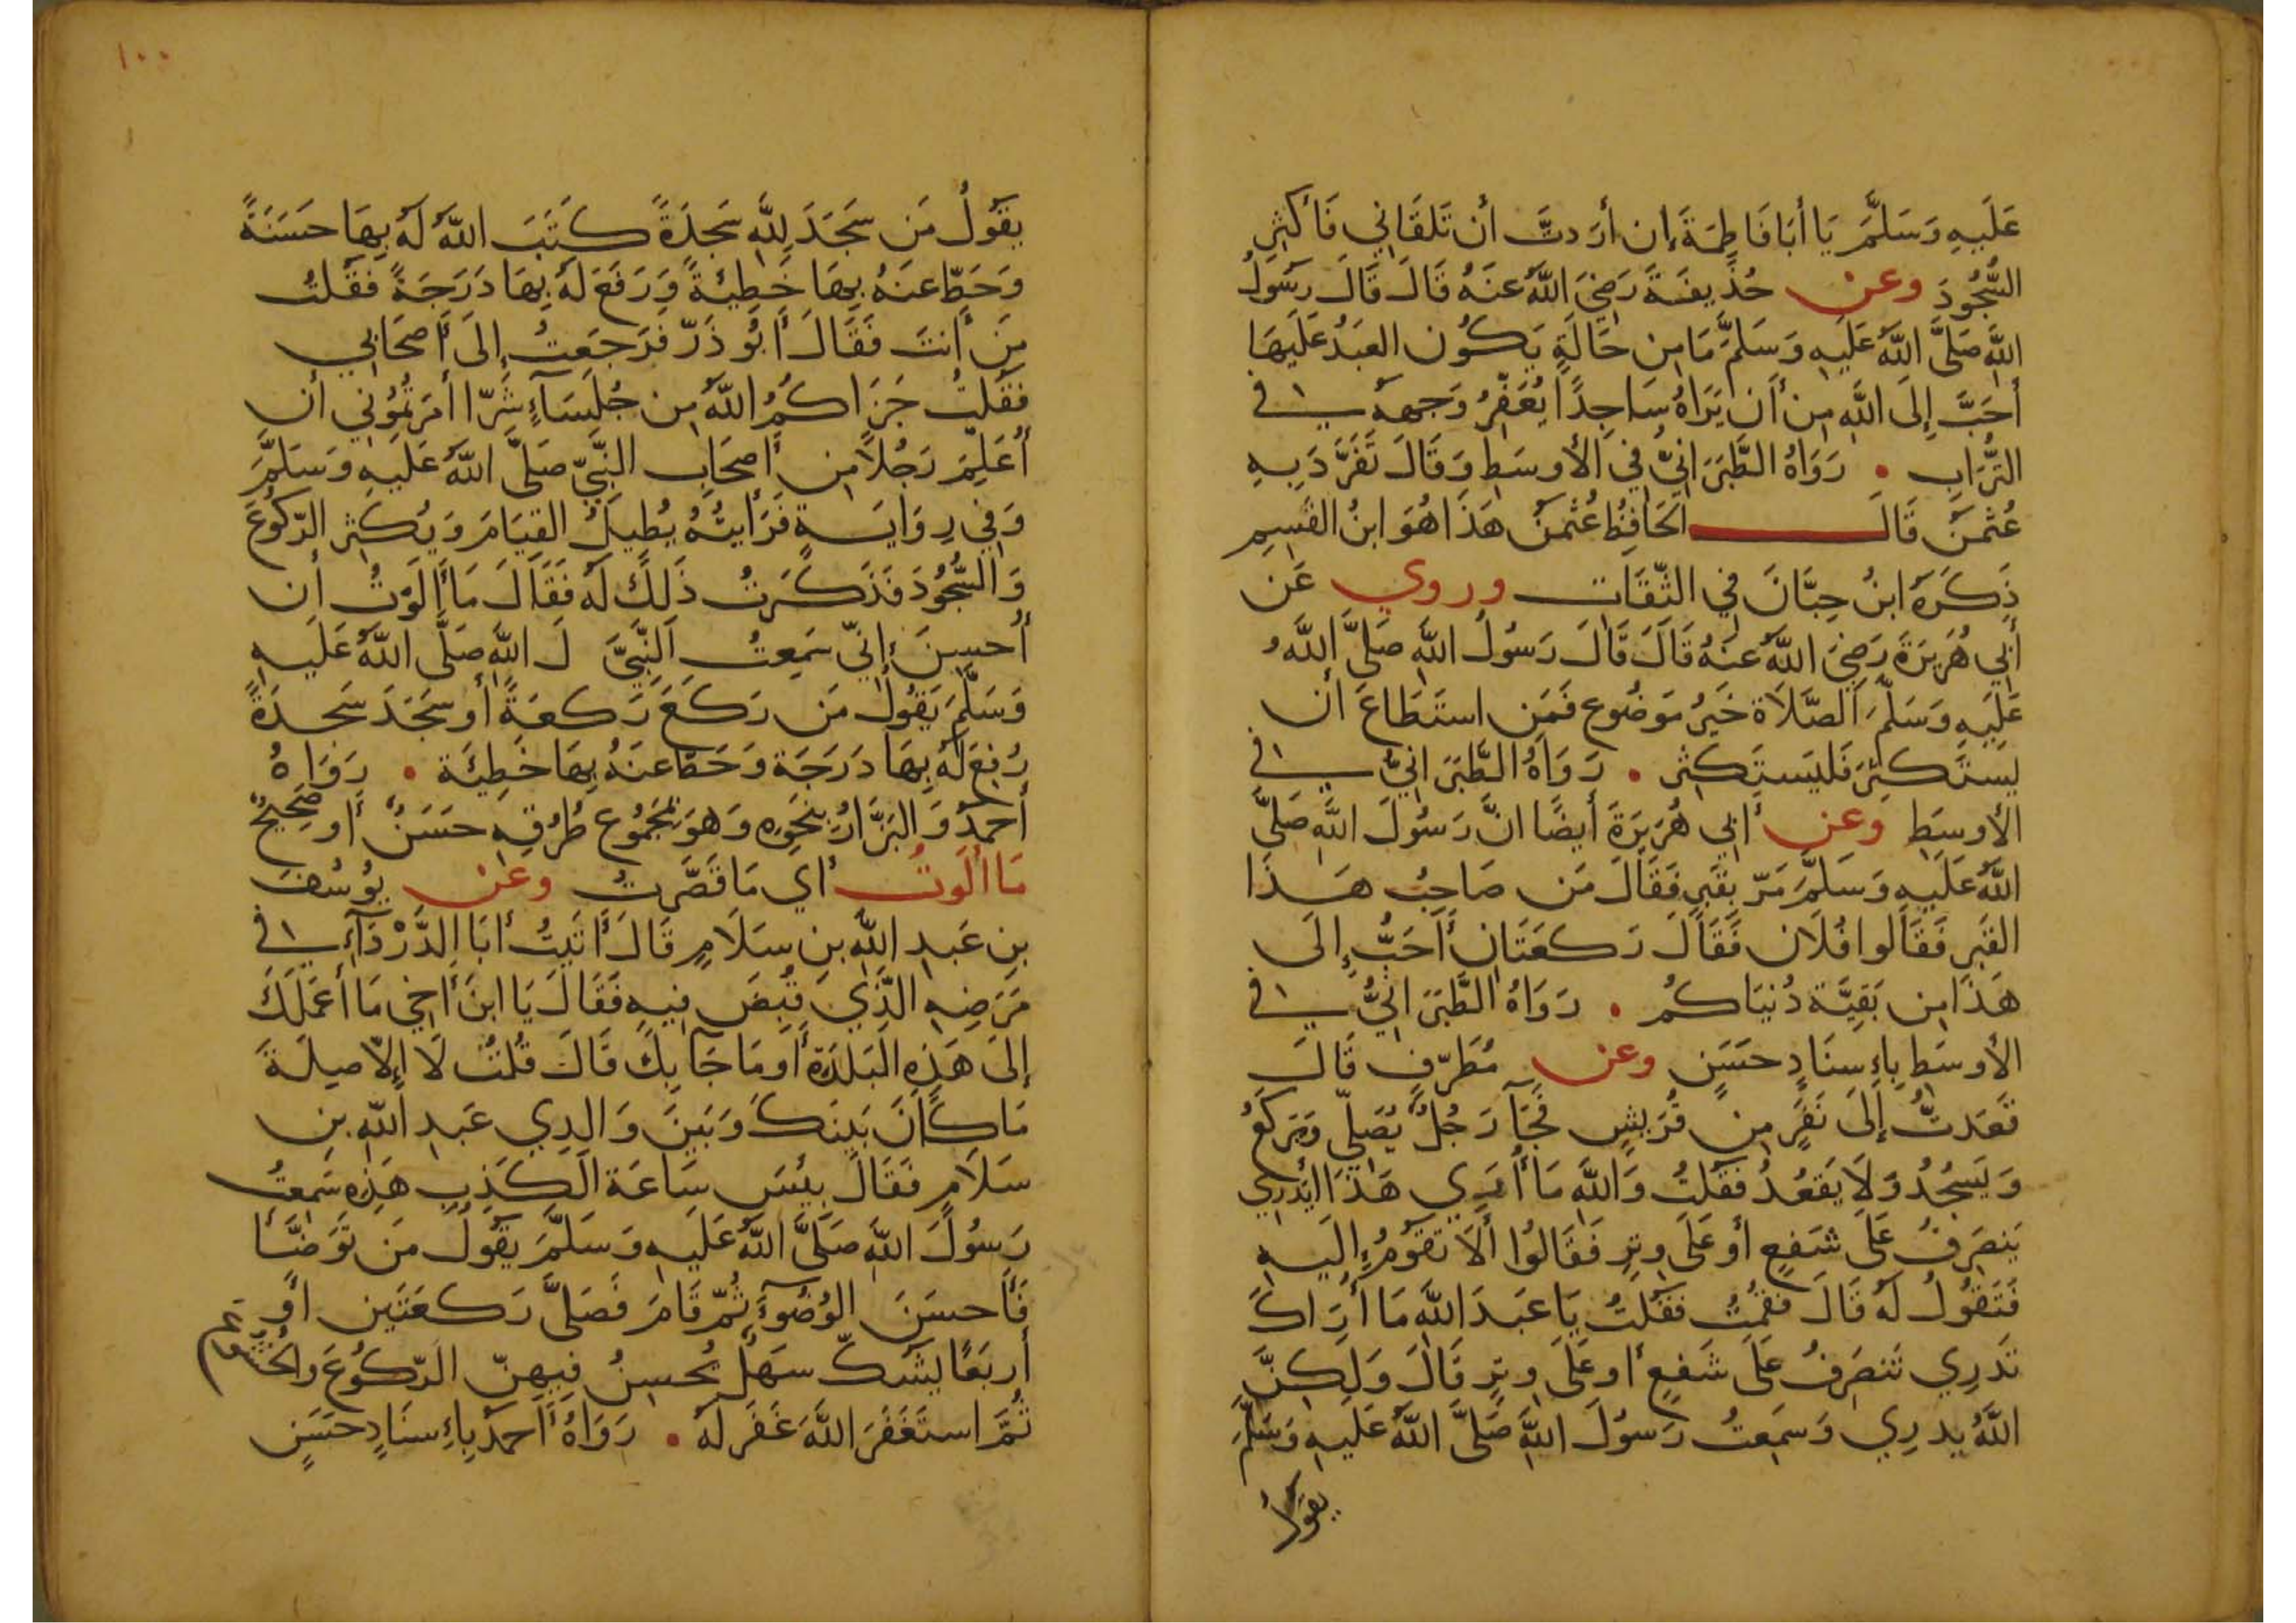 عَلَيهِ وَسَلَّمَ يَا أَبَا فَاطِمَةَ إِن أَرَدتَّ أَن تَلقَانِي فَأَكثِرِ
السُّجُودَ وعن حُذَيفَةَ رَضِيَ اللَّهُ عَنهُ قَالَ قَالَ رَسُولُ
اللَّهِ صَلَّى اللَّهُ عَلَيهِ وَسَلَّمَ مَا مِن حَالَةٍ يَكُون العَبدُ عَلَيهَا
أَحَبَّ إِلَى اللَّهِ مِن أَن يَرَاهُ سَاجِدًا يُعَفِّرُ وَجهَهُ في
التُّرَابِ . رَوَاهُ الطَّبَرَانِيُّ فِي الأَوسَطِ وَقَالَ تَفَرَّدَ بِهِ
عُثمَنُ قَالَ الحَافِظُ عُثمَنُ هَذَا هُوَ ابنُ القَسِمِ
ذَكَرَهُ ابنُ حِبَّانَ فِي الثِّقَاتِ وروي عَن
أَبِي هُرَيرَةَ رَضِيَ اللَّهُ عَنهُ قَالَ قَالَ رَسُولُ اللَّهِ صَلَّى اللَّهُ
عَلَيهِ وَسَلَّمَ الصَّلَاة خَيرُ مَوضُوعٍ فَمَنِ استَطَاعَ أَن
يَستَكثِرَ فَليَستَكثِر . رَوَاهُ الطَّبَرَانِيُّ في
الأَوسَطِ وَعن أَبِي هُرَيرَةَ أَيضًا انَّ رَسُولَ اللَّهِ صَلَّى
اللَّهُ عَلَيهِ وَسَلَّمَ مَرّ بِقَبرٍ فَقَالَ مَن صَاحِبُ هَذَا
القَبرِ فَقَالُوا فُلَان فَقَالَ رَكعَتَانِ أَحَبُّ إِلَى
هَذَا مِن بَقِيَّة دُنيَاكُم . رَوَاهُ الطَّبَرَانِيُّ في
الأَوسَطِ بِإِسنَادٍ حَسَنٍ وعن مُطَرِّفٍ قَالَ
قَعَدتُّ إِلَى نَفَرٍ مِن قُرَيشٍ فَجَآ رَجُلٌ يُصَلِّي وَيَركَعُ
وَيَسجُدُ وَلَا يَقعُدُ فَقُلتُ وَاللَّهِ مَا أَرَي هَذَا يَدرِي
يَنصَرِفُ عَلَى شَفعٍ أَو عَلَى وِترٍ فَقَالُوا أَلَا تَقُومُ إِلَيهِ
فَتَقُولُ لَهُ قَالَ فَقُمتُ فَقُلتُ يَا عَبدَ اللَّهِ مَا أَرَاكَ
تَدرِي تَنصَرِفُ عَلَى شَفعٍ أَو عَلَى وِترٍ قَالَ وَلَكِنَّ
اللَّهَ يدرِي وَسَمِعتُ رَسُولَ اللَّهِ صَلَّى اللَّهُ عَلَيهِ وَسَلَّمَ
يقول
١٠٠
يقُولُ مَن سَجَدَ لِلَّهِ سَجدَةً كَتَبَ اللَّهُ لَهُ بِهَا حَسَنَةً
وَحَطّ عَنهُ بِهَا خَطِيئَةً وَرَفَعَ لَهُ بِهَا دَرَجَةً فَقُلتُ
مَن أَنتَ فَقَالَ أَبُو ذَرّ فَرَجَعتُ إِلَى أَصحَابِي
فَقُلتُ جَزَاكُمُ اللَّهُ مِن جُلَسَآءٍ شَرّا أَمَرتُمُونِي أَن
أُعَلِّمَ رَجُلًا مِن أَصحَابِ النَّبِيّ صَلَّى اللَّهُ عَلَيهِ وَسَلَّمَ
وَفِي رِوَايَةٍ فَرَأَيتُهُ يُطِيلُ القِيَامَ وَيُكثِر الرّكُوعَ
وَالسُّجُودَ فَذَكَرتُ ذَلِكَ لَهُ فَقَالَ مَا أَلَوتُ أَن
أُحسِنَ إِنّي سَمِعتُ النَّبِيَّ لَ اللَّهِ صَلَّى اللَّهُ عَلَيهِ
وَسَلَّمَ يَقُولُ مَن رَكَعَ رَكعَةً أَو سَجَدَ سَجدَةً
رُفِعَ لَهُ بِهَا دَرَجَة وَحَطّ عَنهُ بِهَا خَطِيئَة . رَوَاهُ
أَحمَدُ وَالبَزَّارُ بِنَحوِهِ وَهوَ بمَجمُوعِ طُرُقِهِ حَسَنٌ أَو صَحِيحٌ
مَا أَلَوتُ أَي مَا قَصَّرتُ وعن يُوسُفَ
بنِ عَبدِ اللَّهِ بنِ سَلَامٍ قَالَ أَتَيتُ أَبَا الدَّرْدَآءِ في
مَرَضِهِ الَّذِي قُبِضَ فِيهِ فَقَالَ يَا ابنَ أَخِي مَا أَعمَلَكَ
إِلَى هَذِهِ البَلدَة أَو مَا جَآ بِكَ قَالَ قُلتُ لَا إِلّا صِلَةَ
مَا كَانَ بَينَكَ وَبَينَ وَالِدِي عَبدِ اللَّهِ بنِ
سَلَامٍ فَقَالَ بِئسَ سَاعَة الكَذِبِ هَذِهِ سَمِعتُ
رَسُولَ اللَّهِ صَلَّى اللَّهُ عَلَيهِ وَسَلَّمَ يَقُولُ مَن تَوَضَّأَ
فَأَحسَنَ الوُضُوءَ ثُمّ قَامَ فَصَلَّى رَكعَتَين أَو
أَربَعًا يَشَكّ سَهلٌ يُحسِنُ فِيهِنّ الرّكُوعَ والخُشُوعَ ثم
ثُمَّ استَغفَرَ اللَّهَ غَفَرَ لَهُ . رَوَاهُ أَحمَدُ بِإِسنَادٍ حَسَنٍ